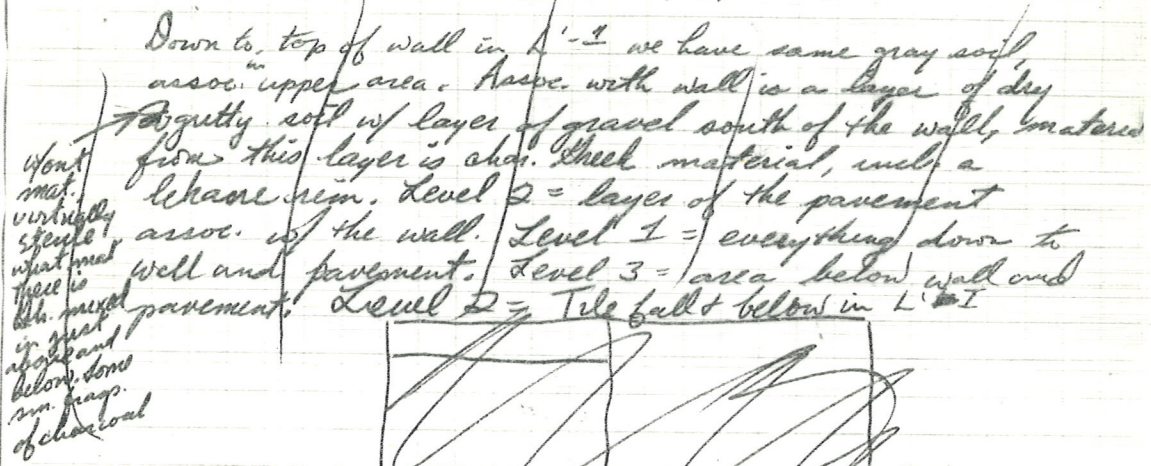 Down to top of wall in L'-1 we have same gray soil,
assoc. in upper area. Assoc. with wall is a layer of dry
gritty soil w/ layer of gravel south of the wall, material
from this layer is char. Greek material, incl. a
lekane rim. Level 2 = layer of the pavement
assoc. w/ the wall. Level 1 = everything down to
wall and pavement. Level 3 = area below wall and
pavement. Level 2 = Tile fall & below in L'-I
mat.
virtually
sterile
what mat
there is
mixed
in just
above and
below. Some
sm. frags.
of charcoal